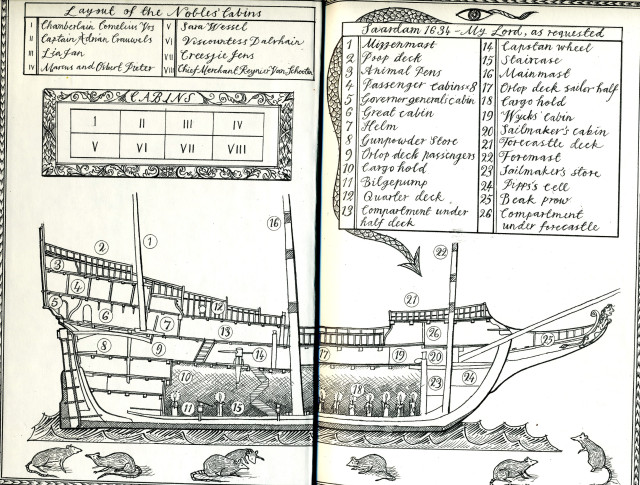 Layout of the Nobles' Cabins
I Chamberlain Cornelius Vos
II Captain Adrian Crauwels
III Lia Jan
IV Marcus and Osbert Pieter
V Sara Wessel
VI Viscountess Dalvhain
VII Creesjie Jens
VIII Chief Merchant Reynier Van Schooten
CABINS
I II III IV
V VI VII VIII
Saardam 1634 - My Lord, as requested
1 Mizzenmast
2 Poop deck
3 Animal Pens
4 Passenger cabins x 8
5 Governor general's cabin
6 Great cabin
7 Helm
8 Gunpowder Store
9 Orlop deck passengers
10 Cargo hold
11 Bilgepump
12 Quarter deck
13 Compartment under
half deck
14 Capstan wheel
15 Staircase
16 Mainmast
17 Orlop deck sailor half
18 Cargo hold
19 Wyck's cabin
20 Sailmaker's cabin
21 Forecastle deck
22 Foremast
23 Sailmaker's store
24 Pipps's cell
25 Beak prow
26 Compartment
under forecastle
16
1
22
2
3
4
5
6
7
12
13
21
26
25
8
9
14
17
19
20
10
18
23
24
11
15